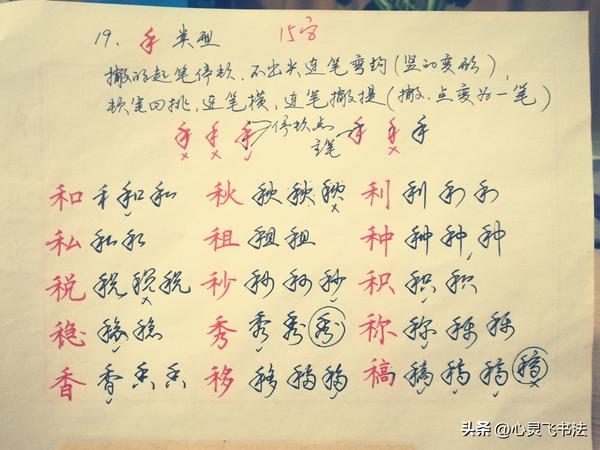 19、禾 类型 15字
撇的起笔停软、不出头连笔弯钩(竖的变形),
软笔回挑,连笔横,连笔撇提(撇、点变为一笔)
禾 禾 禾 停软点 禾 禾 禾
主笔
和 和 和 和 秋 秋 秋 秋 利 利 利 利
私 私 私 租 租 租 种 种 种 种
税 税 税 税 秒 秒 秒 秒 积 积 积
稳 稳 稳 秀 秀 秀 秀 称 称 称 称
香 香 香 香 移 移 移 移 稿 稿 稿 稿 稿
头条 @心灵飞书法